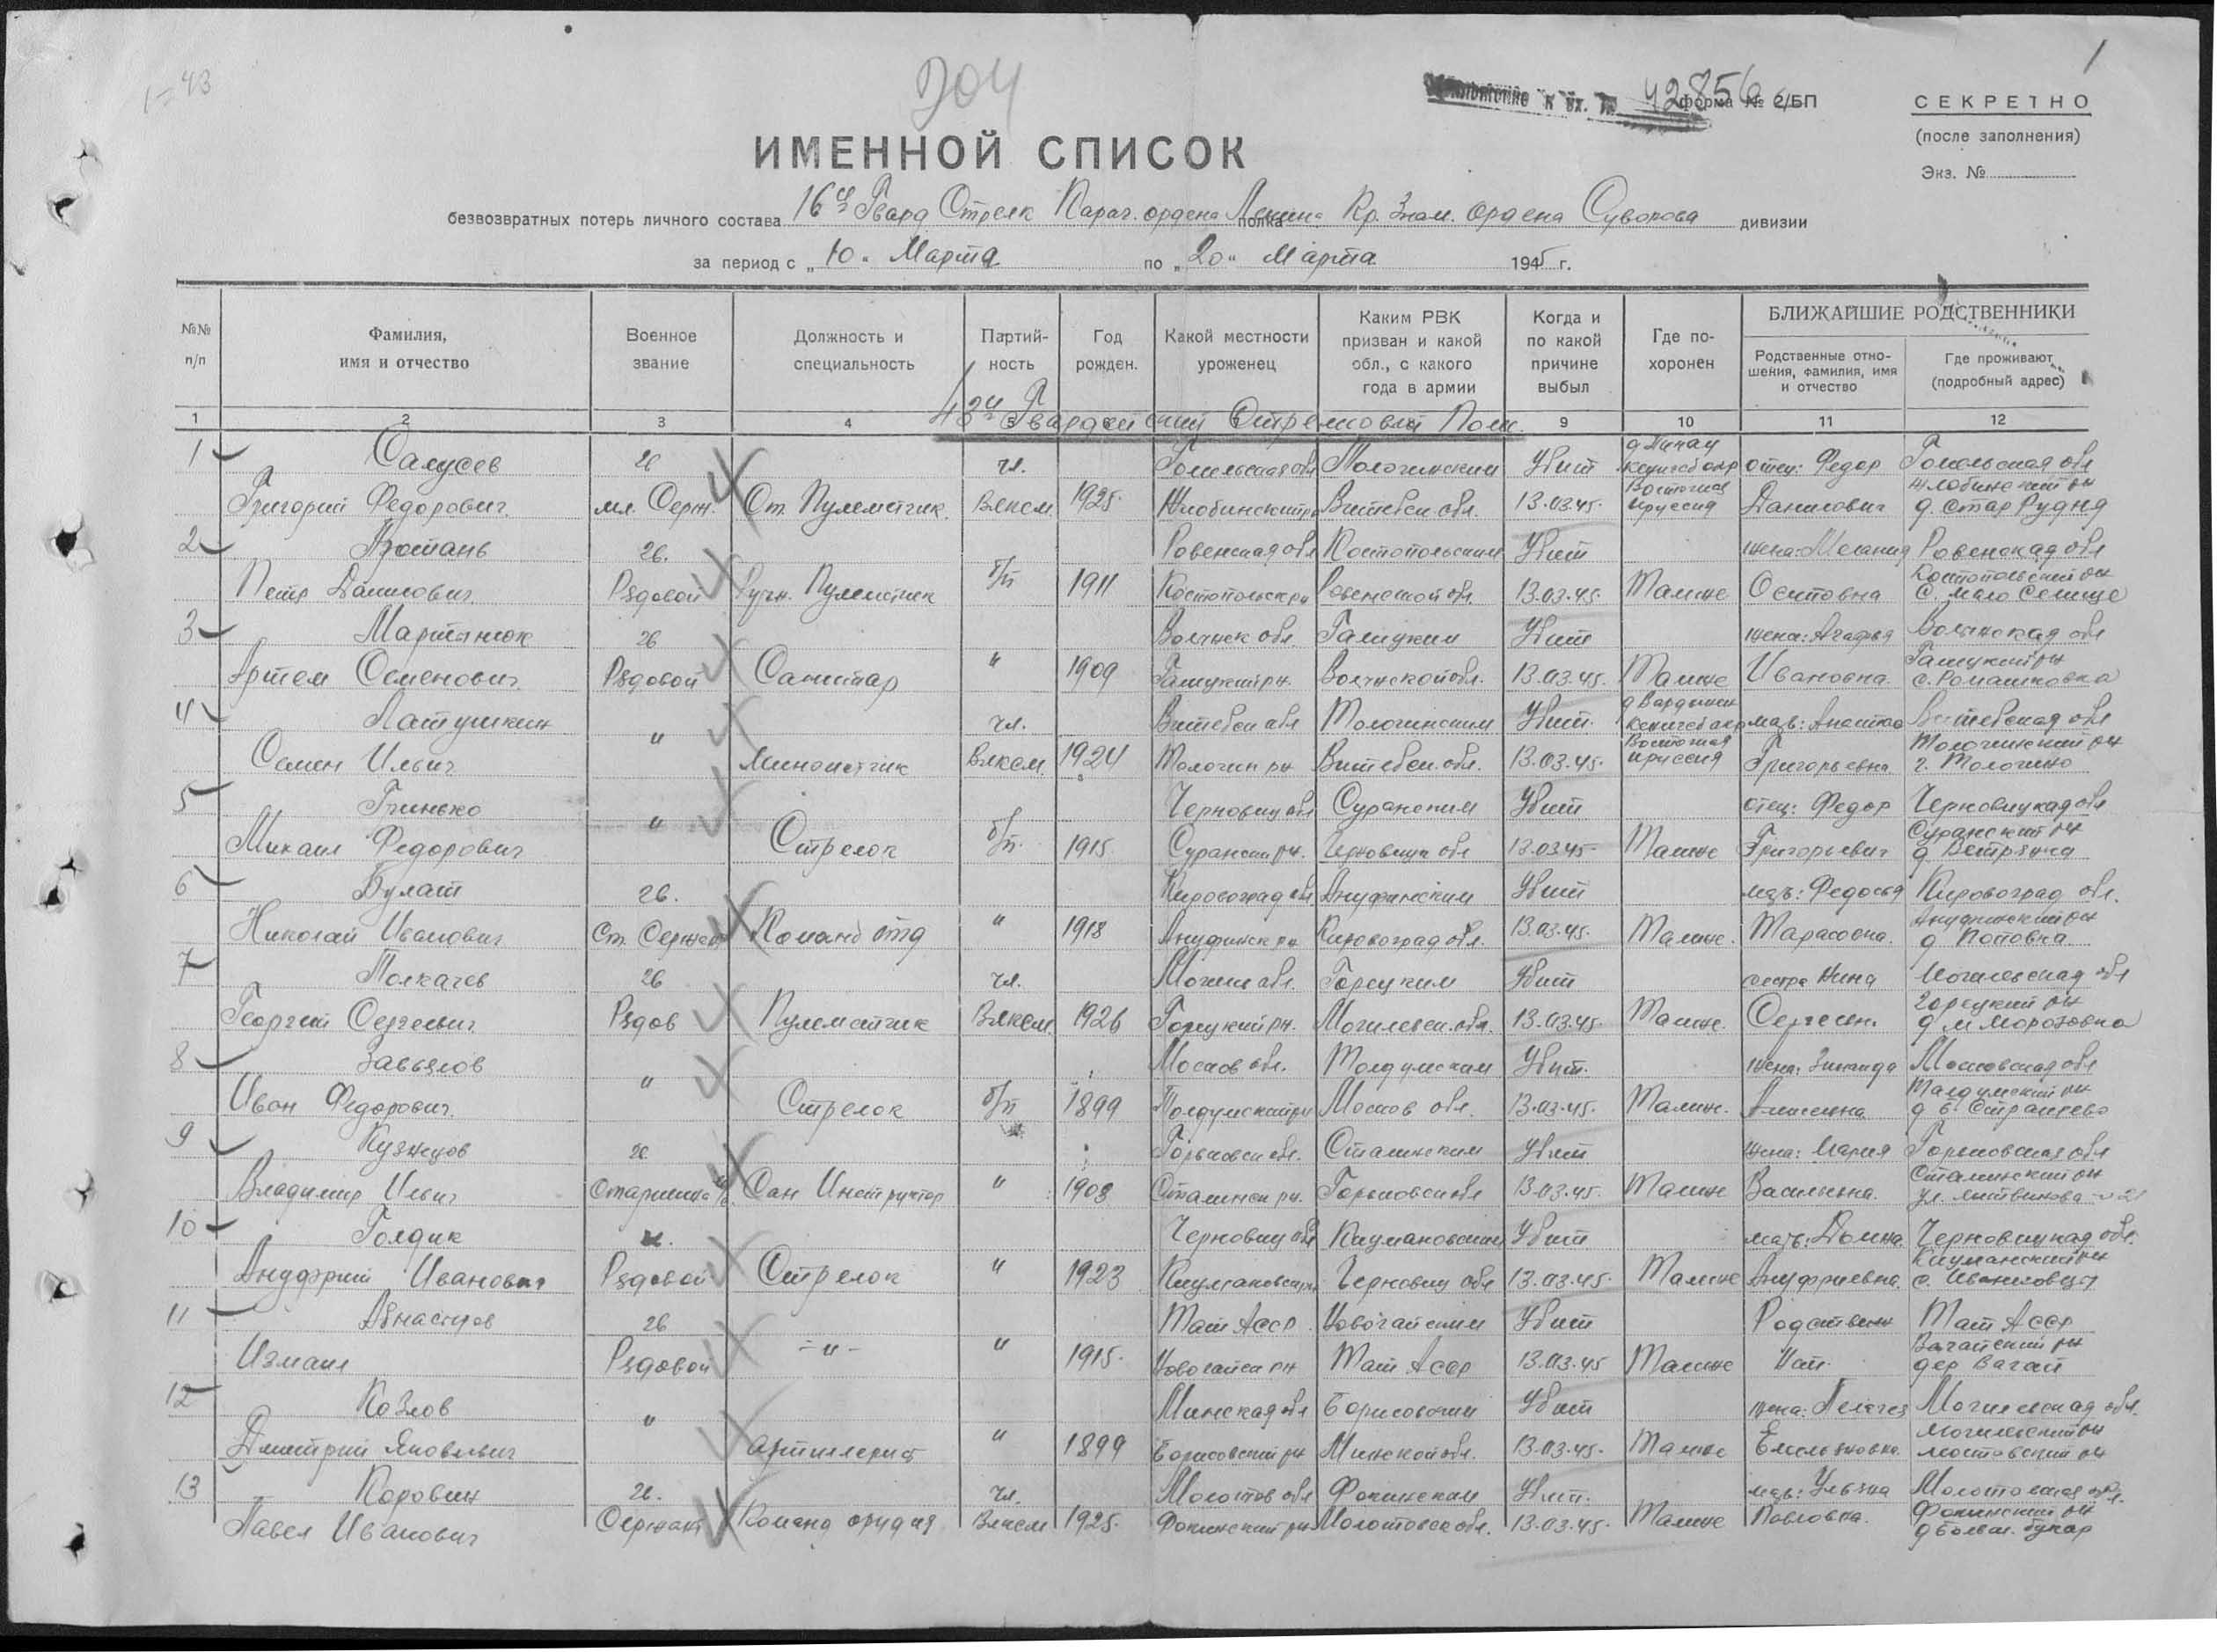 1-43
704
1
42856
форма № 2/БП
СЕКРЕТНО
(после заполнения)
Экз. №
ИМЕННОЙ СПИСОК
безвозвратных потерь личного состава 16ой Гвард Стрелк Карач. ордена Ленина полка Кр. Знам. ордена Суворова дивизии
за период с „10“ Марта по „20“ Марта 1945 г.
№№ п/п
Фамилия, имя и отчество
Военное звание
Должность и специальность
Партий- ность
Год рожден.
Какой местности уроженец
Каким РВК призван и какой обл., с какого года в армии
Когда и по какой причине выбыл
Где по- хоронен
БЛИЖАЙШИЕ РОДСТВЕННИКИ
Родственные отно- шения, фамилия, имя и отчество
Где проживают (подробный адрес)
1 2 3 4 5 6 7 8 9 10 11 12
43й Гвардейский Стрелковый Полк
1 гв чл. Гомельская обл Толочинским Убит отец: Федор Гомельская обл
Григорий Федорович мл. Серж. Ст. Пулеметчик Влксм 1925 Жлобинский р Витебск. обл. 13.03.45. Восточная Пруссия Данилович Жлобинский рн д. Стар Рудня
2 гв. Ровенская обл Костопольским Убит жена: Мелания Ровенская обл
Петр Данилович Рядовой Ручн. Пулеметчик б/п 1911 Костопольск рн Ровенской обл. 13.03.45. Там же Осиповна Костопольский рн с. Мало Селище
3 Мартынюк гв Волынск обл. Убит жена: Агафья Волынская обл
Артем Семенович Рядовой Санитар " 1909 Волынской обл. 13.03.45. Там же Ивановна с. Ромашковка
4 Латушкин " чл. Витебск обл Толочинским Убит. Витебская обл
Семен Ильич Минометчик Влксм 1924 Толочин рн Витебск. обл. 13.03.45. Восточная Пруссия Григорьевна Толочинский рн г. Толочино
5 Гринько " Черновиц обл Убит отец: Федор Черновицкая обл
Михаил Федорович Стрелок б/п. 1915 Черновицк обл 13.03.45 Там же Григорьевич
6 Булат гв. Кировоград обл Убит мать: Федосья Кировоград обл.
Николай Иванович Ст. Сержант Команд отд " 1918 Кировоград обл. 13.03.45. Там же. Тарасовна. д. Поповка
7 Толкачев гв чл. Могил обл. Горецким Убит сестра Нина Могилевская обл
Георгий Сергеевич Рядов Пулеметчик Влксм 1926 Горецкий рн. Могилевск. обл. 13.03.45. Там же. Сергеевн. Горецкий рн
8 Завьялов " Москов обл. Талдумским Убит. жена: Московская обл
Иван Федорович Стрелок б/п 1899 Москов обл. 13.03.45. Там же. Талдумский рн
9 Кузнецов Горьковск обл. Сталинским Убит жена: Мария Горьковская обл
Владимир Ильич Старшина Сан Инструктор " 1908 Сталинск рн. Горьковск обл 13.03.45. Там же Васильевна. Сталинский рн ул. Литвинова
10 Голдик Черновиц обл Кицмановским Убит мать: Домна Черновицкая обл.
Андфрий Иванович Рядовой Стрелок " 1923 Черновиц обл 13.03.45. Там же Ануфриевна. с. Иванковцы
11 гв Тат Асср Убит Родствен Тат Асср
Измаил Рядовой -"- " 1915. Тат Асср 13.03.45 Там же дер Вагай
12 Козлов " Минская обл Борисовским Убит жена: Могилевская обл.
Дмитрий Яковлевич Артиллерист " 1899 Борисовский рн Минской обл. 13.03.45. Там же Емельяновна Могилевский рн
13 Коровин гв. чл. Молотов обл Фокинским Убит. мать: Ульяна Молотовская обл.
Павел Иванович Сержант Команд орудия Влксм 1925. Фокинский рн Молотовск обл. 13.03.45. Там же Павловна. Фокинский рн